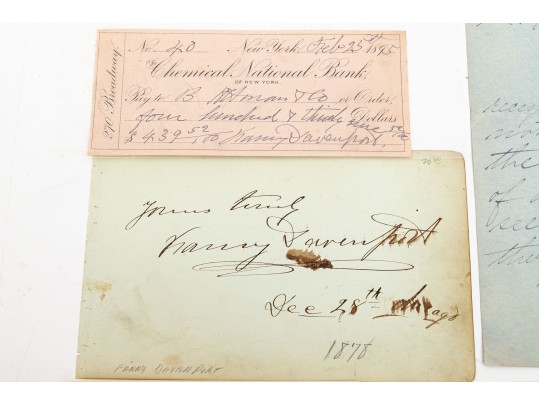 No. 40 New York, Feb 25th 1895
The Chemical National Bank,
OF NEW YORK.
270 Broadway.
Pay to B. Altman & Co or Order,
four hundred & thirty nine 52/100 Dollars
$439 52/100 Fanny Davenport.
Yours truly
Fanny Davenport
Dec 28th Chicago
1878
FANNY DAVENPORT
the
of
the